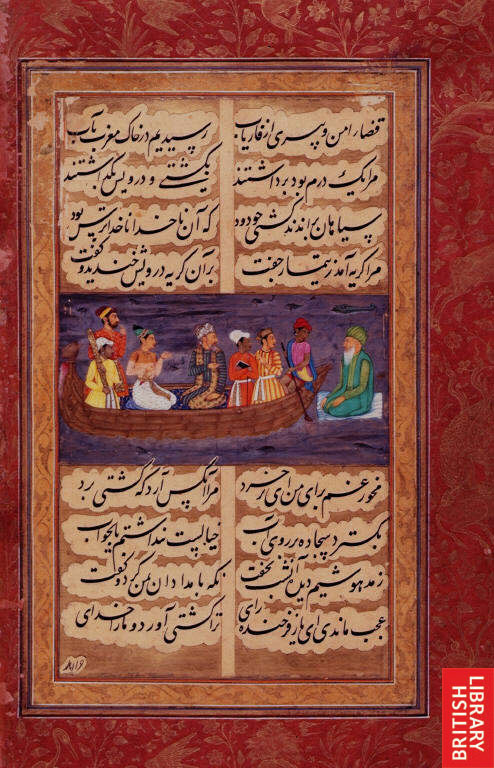 قضا را من و پیری از فاریاب رسیدیم در خاک مغرب بآب
مرا یک درم بود برداشتند بکشتی و درویش بگذاشتند
سیاهان براندند کشتی چو دود که آن ناخدا ناخدا ترس بود
مرا گریه آمد ز تیمار جفت برآن گریه درویش خندید و گفت
مخور غم برای من ای پر خرد مرا آنکس آرد که کشتی برد
بگسترد سجاده بر روی آب خیالست پنداشتم یا بخواب
ز مدهوشیم دیده آنشب نخفت نگه بامدادان بمن کرد و گفت
عجب ماندی ای یار فرخنده رای ترا کشتی آورد و ما را خدای
BRITISH
LIBRARY